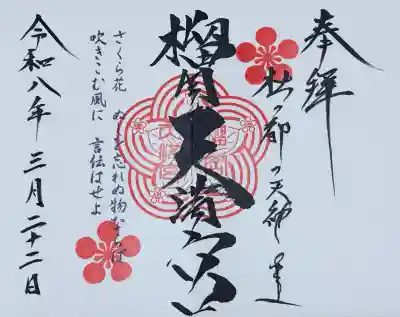 奉拝
杜の都の天神さま
榴岡天満宮
さくら花 ぬしを忘れぬ物ならば
吹きこむ風に 言伝はせよ
令和八年三月二十二日